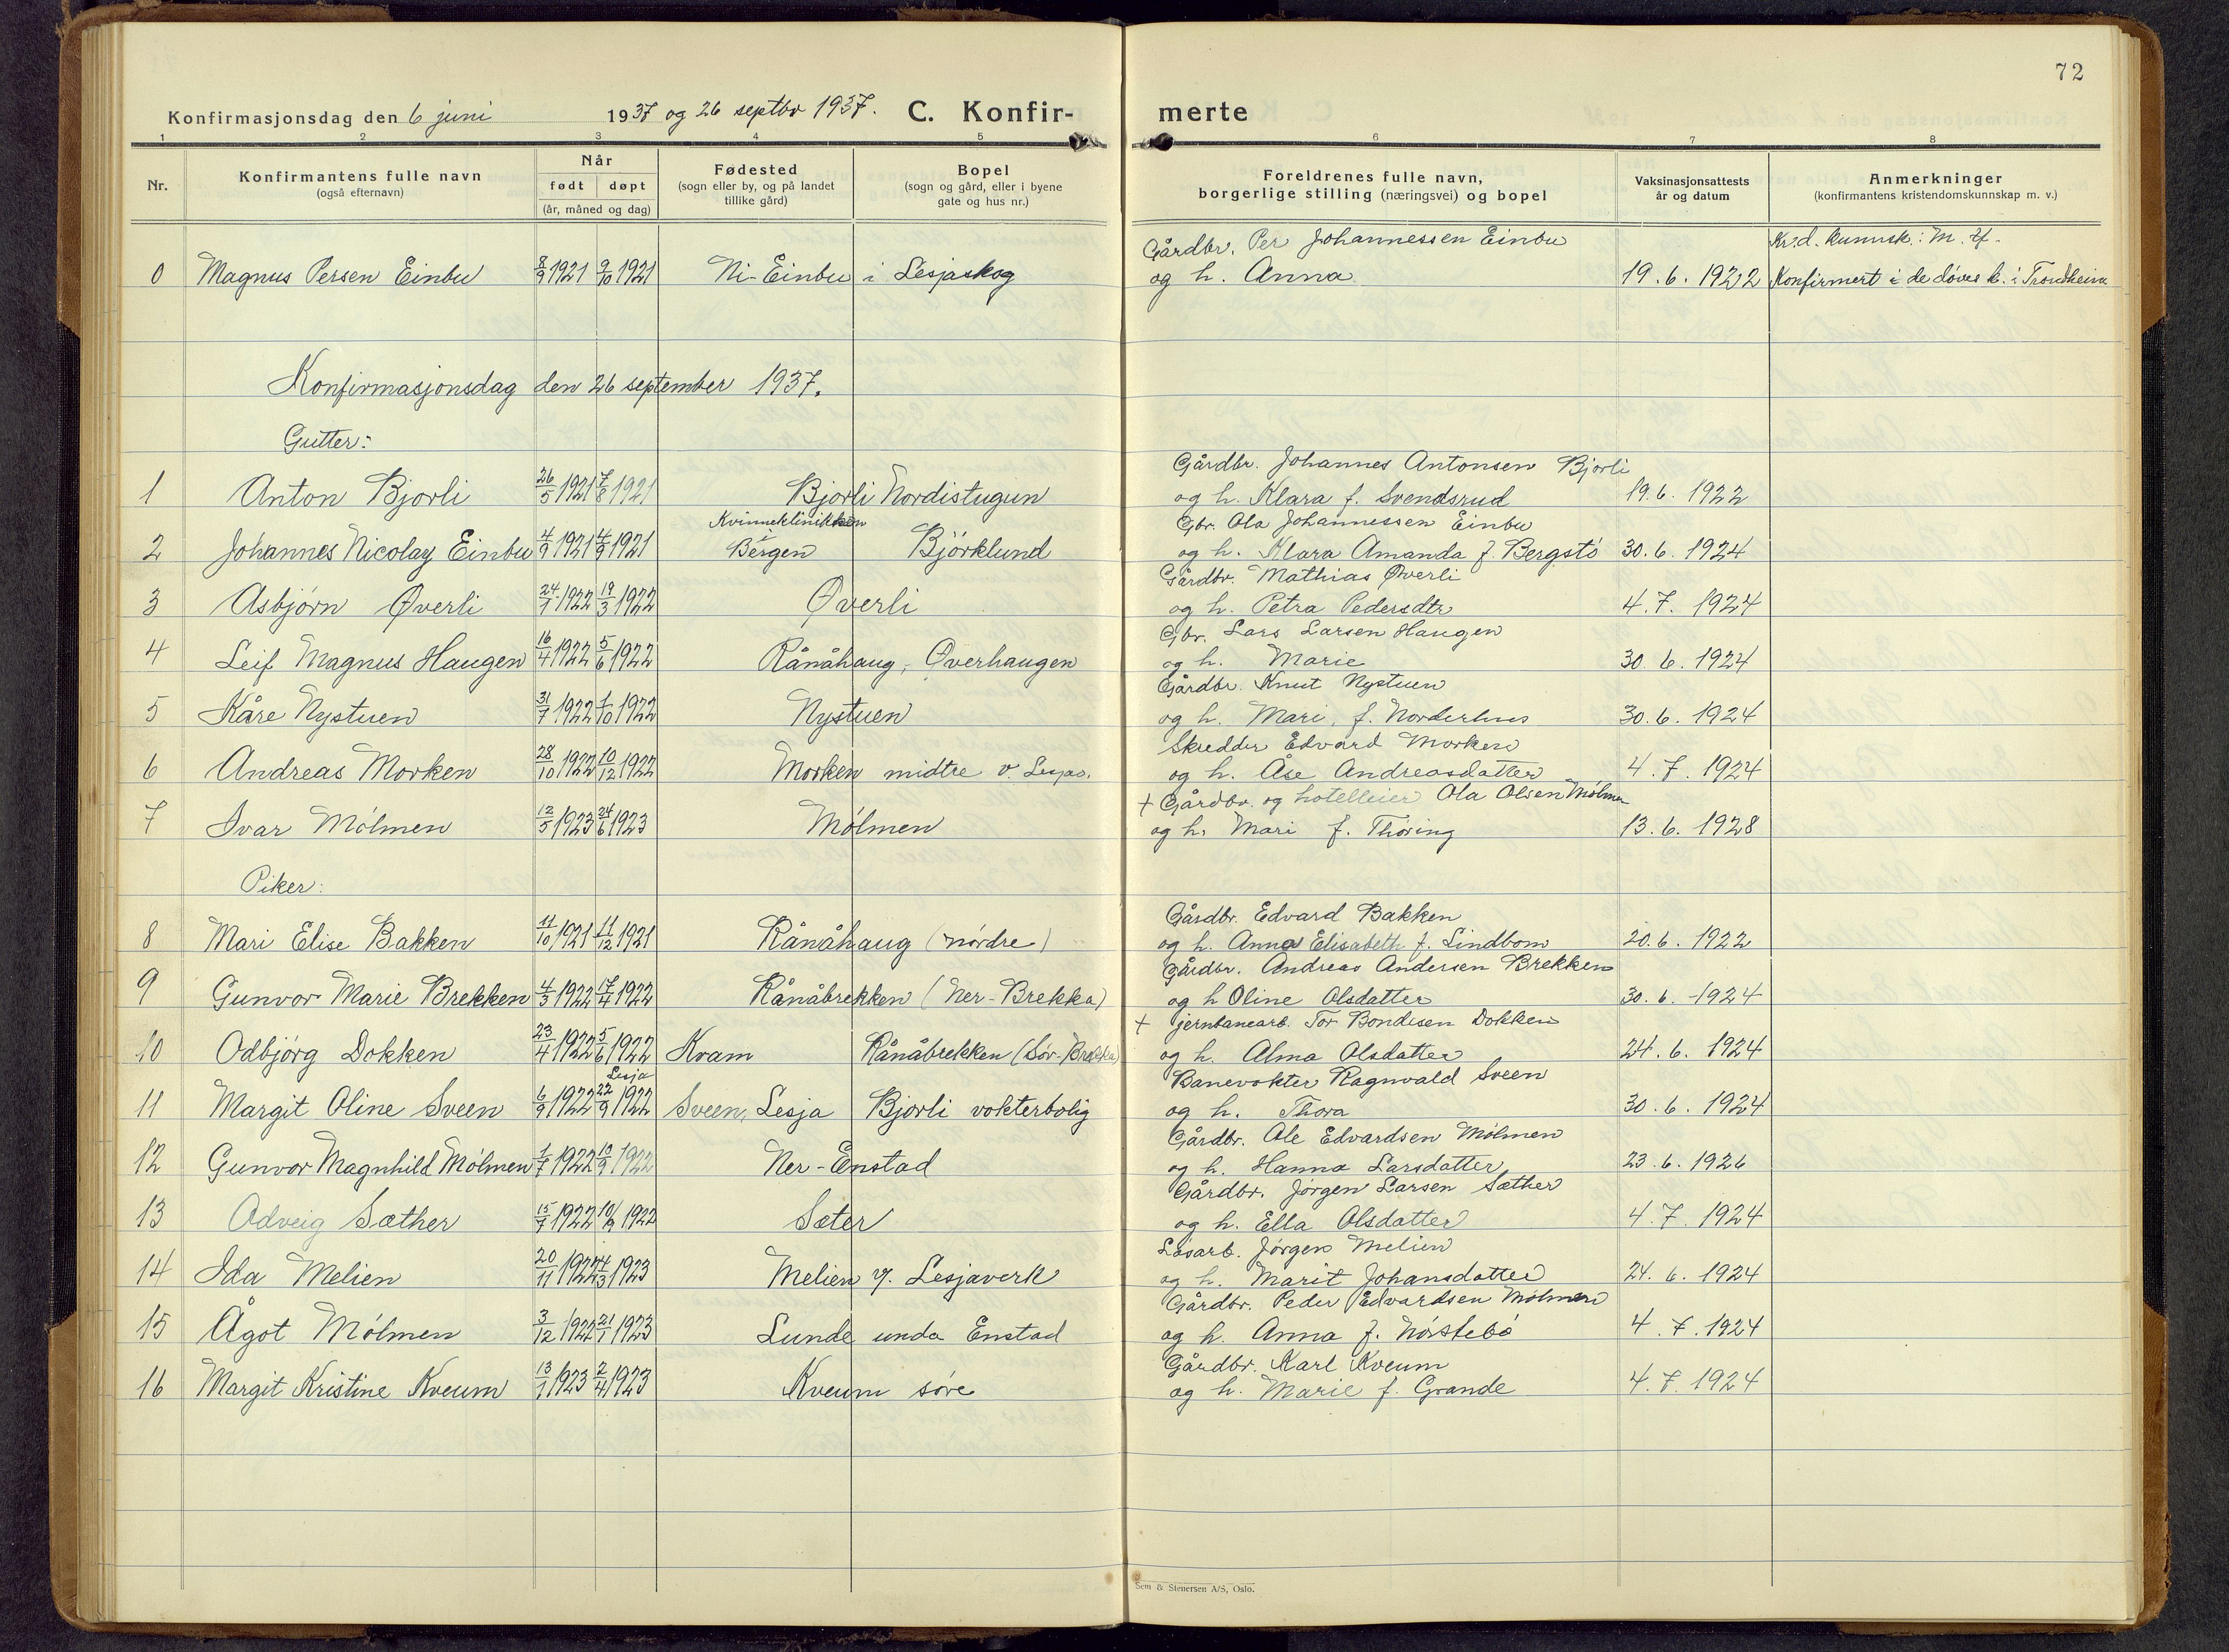 72
Konfirmasjonsdag den 6 juni 1937 og 26 septbr 1937. C. Konfir-
merte
1 2 3 4 5 6 7 8
Nr. Konfirmantens fulle navn (også efternavn) Når født døpt (år, måned og dag) Fødested (sogn eller by, og på landet tillike gård) Bopel (sogn og gård, eller i byene gate og hus nr.) Foreldrenes fulle navn, borgerlige stilling (næringsvei) og bopel Vaksinasjonsattests år og datum Anmerkninger (konfirmantens kristendomskunnskap m. v.)
Gårdbr. Per Johannessen Einbu Krd. kunnsk.: M. tf.
0 Magnus Persen Einbu 8/9 1921 9/10 1921 Ni-Einbu i Lesjaskog og h. Anna 19.6.1922 Konfirmert i de døves k. i Trondheim
Konfirmasjonsdag den 26 september 1937.
Gutter:
Gårdbr. Johannes Antonsen Bjorli
1 Anton Bjorli 26/5 1921 7/8 1921 Bjorli Nordistugun og h. Klara f. Svendsrud 19.6.1922
Kvinneklinikken Gbr. Ola Johannessen Einbu
2 Johannes Nicolay Einbu 4/9 1921 4/9 1921 Bergen Björklund og h. Klara Amanda f. Bergstö 30.6.1924
Gårdbr. Mathias Øverli
3 Asbjørn Øverli 24/1 1922 19/3 1922 Øverli og h. Petra Pedersdtr 4.7.1924
Gbr. Lars Larsen Haugen
4 Leif Magnus Haugen 16/4 1922 5/6 1922 Rånåhaug, Øverhaugen og h. Marie 30.6.1924
Gårdbr. Knut Nystuen
5 Kåre Nystuen 31/7 1922 1/10 1922 Nystuen og h. Mari, f. Norderhus 30.6.1924
Skredder Edvard Morken
6 Andreas Morken 28/10 1922 10/12 1922 Morken midtre v. Lesjas. og h. Åse Andreasdatter 4.7.1924
+ Gårdbr. og hotelleier Ola Olsen Mølmen
7 Ivar Mølmen 12/5 1923 24/6 1923 Mølmen og h. Mari f. Thøring 13.6.1928
Piker:
Gårdbr. Edvard Bakken
8 Mari Elise Bakken 11/10 1921 11/12 1921 Rånåhaug (nørdre) og h. Anna Elisabeth f. Lindbom 20.6.1922
Gårdbr. Andreas Andersen Brekken
9 Gunvor Marie Brekken 4/3 1922 17/4 1922 Rånåbrekken (Ner-Brekka) og h Oline Olsdatter 30.6.1924
+ jernbanearb. Tor Bondesen Dokken
10 Odbjørg Dokken 23/4 1922 5/6 1922 Kvam Rånåbrekken (Sør-Brekka) og h. Alma Olsdatter 24.6.1924
Lesja Banevokter Ragnvald Sveen
11 Margit Oline Sveen 6/9 1922 22/9 1922 Sveen, Lesja Bjorli vokterbolig og h. Thora 30.6.1924
Gårdbr. Ole Edvardsen Mølmen
12 Gunvor Magnhild Mølmen 1/7 1922 10/9 1922 Ner-Enstad og h. Hanna Larsdatter 23.6.1926
Gårdbr. Jørgen Larsen Sæther
13 Adveig Sæther 15/7 1922 10/9 1922 Sæter og h. Ella Olsdatter 4.7.1924
Løsarb. Jørgen Melien
14 Ida Melien 20/11 1922 4/3 1923 Melien v. Lesjaverk og h. Marit Johansdatter 24.6.1924
Gårdbr. Peder Edvardsen Mølmen
15 Ågot Mølmen 3/12 1922 21/1 1923 Lunde unda Enstad og h. Anna f. Nørstebø 4.7.1924
Gårdbr. Karl Kveum
16 Margit Kristine Kveum 13/1 1923 2/4 1923 Kveum søre og h. Marie f. Grande 4.7.1924
Sem & Stenersen A/S, Oslo.